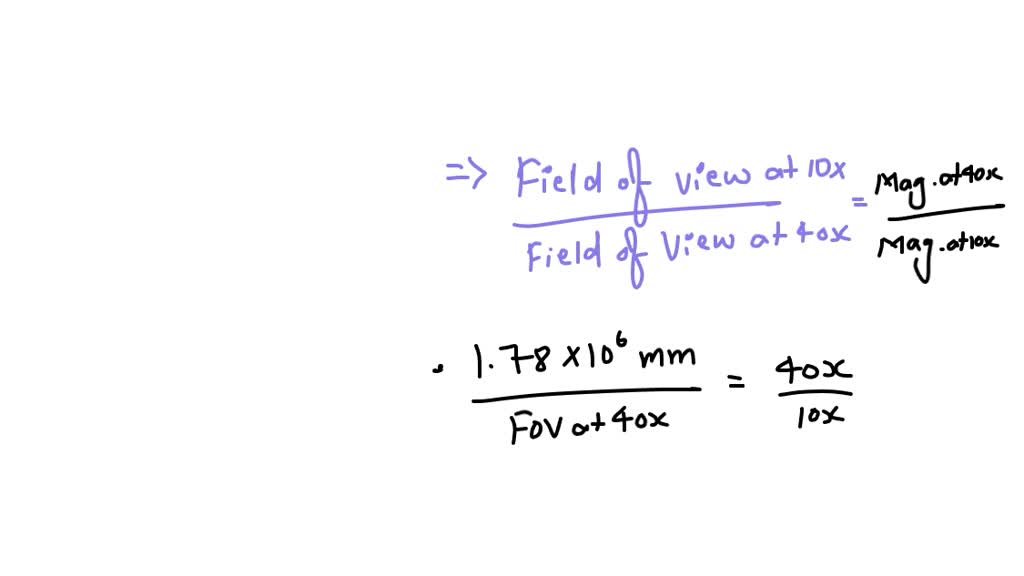 => Field of view at 10x / Field of View at 40x = Mag. at 40x / Mag. at 10x
. 1.78 x 10^6 mm / FOV at 40x = 40x / 10x